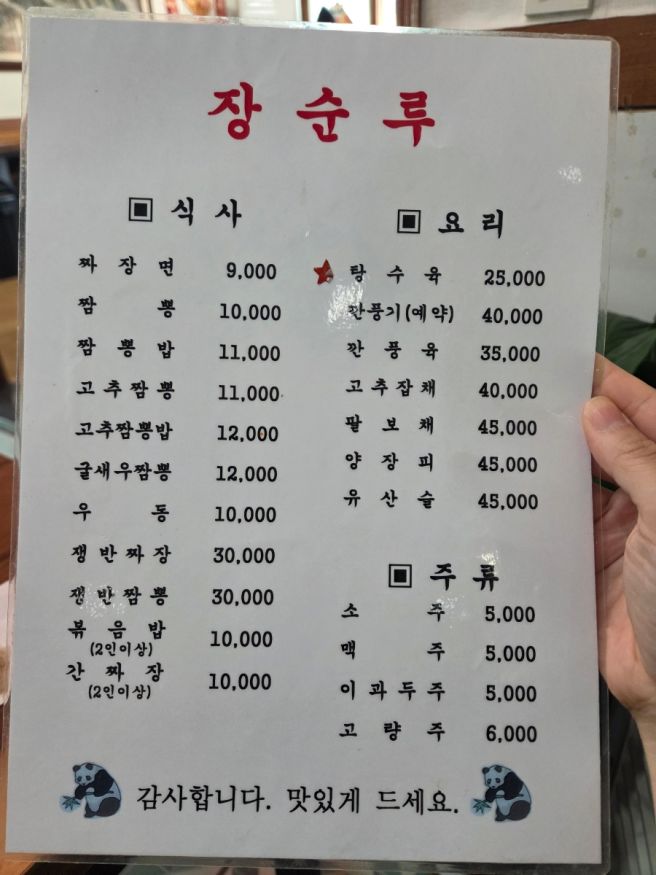 장순루
식사
짜장면 9,000
짬뽕 10,000
짬뽕밥 11,000
고추짬뽕 11,000
고추짬뽕밥 12,000
굴새우짬뽕 12,000
우동 10,000
쟁반짜장 30,000
쟁반짬뽕 30,000
볶음밥 10,000
(2인이상)
간짜장 10,000
(2인이상)
요리
탕수육 25,000
깐풍기(예약) 40,000
깐풍육 35,000
고추잡채 40,000
팔보채 45,000
양장피 45,000
유산슬 45,000
주류
소주 5,000
맥주 5,000
이과두주 5,000
고량주 6,000
감사합니다. 맛있게 드세요.